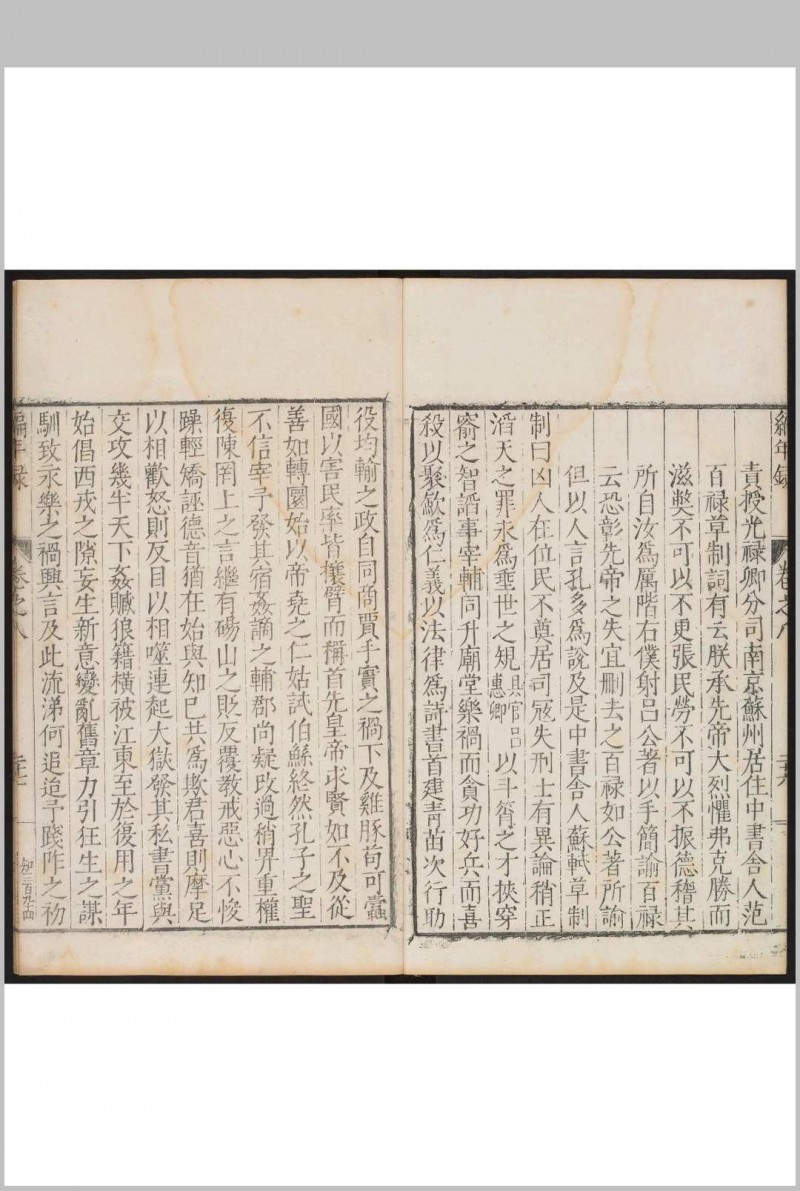 編年錄 卷之八 三十六
責授光禄卿分司南京蘇州居住中書舍人范
百禄草制詞有云朕承先帝大烈懼弗克勝而
滋獘不可以不更張民勞不可以不振德稽其
所自汝為厲階右僕射吕公著以手簡諭百禄
云恐彰先帝之失宜刪去之百禄如公著所諭
但以人言孔多為說及是中書舍人蘇軾草制
制曰凶人在位民不奠居司冦失刑士有異論稍正
滔天之罪永為垂世之規具官吕惠卿以斗筲之才挾穿
窬之智謟事宰輔同升廟堂樂禍而貪功好兵而喜
殺以聚歛為仁義以法律為詩書首建青苗次行助
役均輸之政自同商賈手實之禍下及雞豚苟可蠧
國以害民率皆攘臂而稱首先皇帝求賢如不及從
善如轉圜始以帝堯之仁姑試伯鯀終然孔子之聖
不信宰予發其宿姦謫之輔郡尚疑改過稍畀重權
復陳罔上之言繼有碭山之貶反覆教戒惡心不悛
躁輕矯誣德音猶在始與知已共為欺君喜則摩足
以相歡怒則反目以相噬連起大獄發其私書黨與
交攻幾半天下姦贓狼籍橫被江東至於復用之年
始倡西戎之隙妄生新意變亂舊章力引狂生之謀
馴致永樂之禍興言及此流涕何追迨予踐阼之初
編年錄 卷之八 三十六
初三百九十四